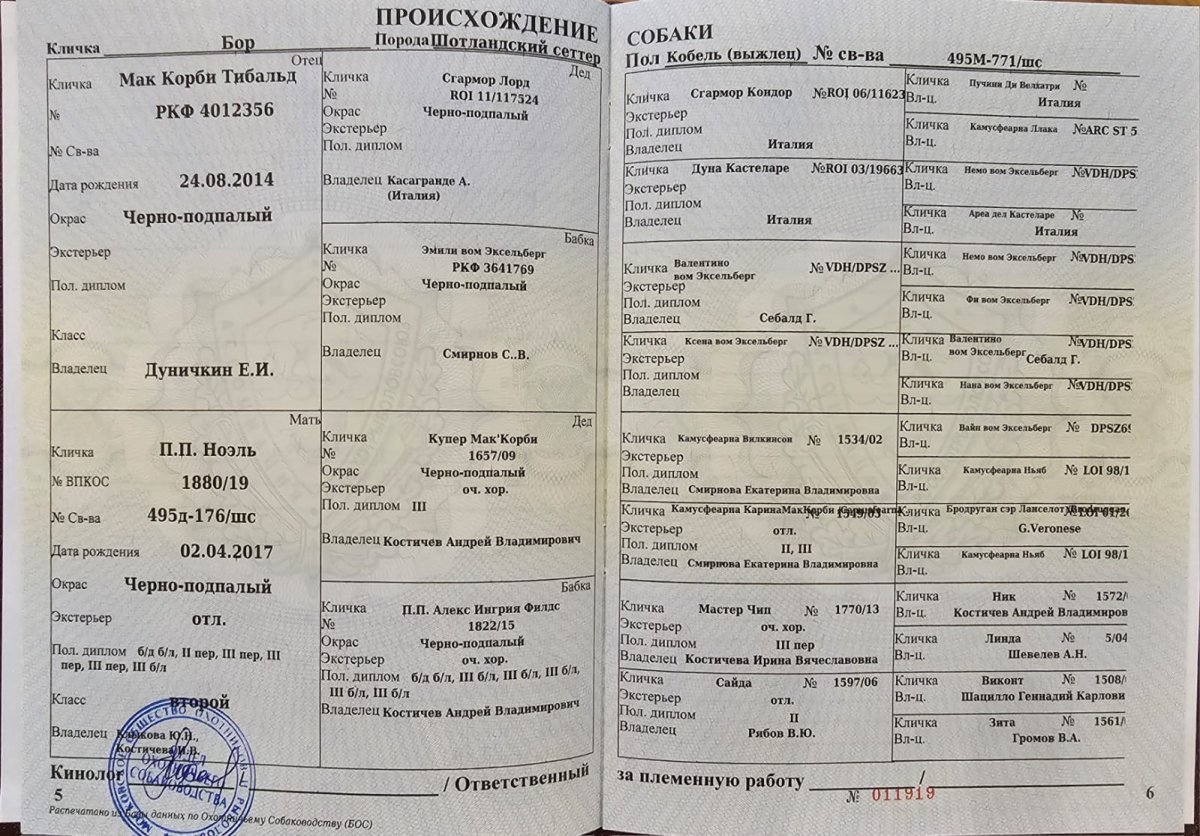 ПРОИСХОЖДЕНИЕ
Кличка Бор Порода Шотландский сеттер
Отец
Кличка Мак Корби Тибальд
№ РКФ 4012356
№ Св-ва
Дата рождения 24.08.2014
Окрас Черно-подпалый
Экстерьер
Пол. диплом
Класс
Владелец Дуничкин Е.И.
Дед
Кличка Сгармор Лорд
№ ROI 11/117524
Окрас Черно-подпалый
Экстерьер
Пол. диплом
Владелец Касагранде А.
(Италия)
Бабка
Кличка Эмили вом Эксельберг
№ РКФ 3641769
Окрас Черно-подпалый
Экстерьер
Пол. диплом
Владелец Смирнов С..В.
Мать
Кличка П.П. Ноэль
№ ВПКОС 1880/19
№ Св-ва 495д-176/шс
Дата рождения 02.04.2017
Окрас Черно-подпалый
Экстерьер отл.
Пол. диплом б/д б/л, II пер, III пер, III
пер, III пер, III б/л
Класс второй
Владелец Климова Ю.Н.,
Костичева И.В.
Дед
Кличка Купер Мак'Корби
№ 1657/09
Окрас Черно-подпалый
Экстерьер оч. хор.
Пол. диплом III
Владелец Костичев Андрей Владимирович
Бабка
Кличка П.П. Алекс Ингрия Филдс
№ 1822/15
Окрас Черно-подпалый
Экстерьер оч. хор.
Пол. диплом б/д б/л, III б/л, III б/л, III б/л,
III б/л, III б/л
Владелец Костичев Андрей Владимирович
Кинолог / Ответственный
5
Распечатано из Базы данных по Охотничьему Собаководству (БОС)
СОБАКИ
Пол Кобель (выжлец) № св-ва 495М-771/шс
Кличка Сгармор Кондор №ROI 06/11623
Экстерьер
Пол. диплом
Владелец Италия
Кличка Дуна Кастеларе №ROI 03/19663
Экстерьер
Пол. диплом
Владелец Италия
Кличка Валентино
вом Эксельберг № VDH/DPSZ ...
Экстерьер
Пол. диплом
Владелец Себалд Г.
Кличка Ксена вом Эксельберг № VDH/DPSZ ...
Экстерьер
Пол. диплом
Владелец
Кличка Камусфеарна Вилкинсон № 1534/02
Экстерьер
Пол. диплом
Владелец Смирнова Екатерина Владимировна
Кличка Камусфеарна КаринаМакКорби № 1549/03
Экстерьер отл.
Пол. диплом II, III
Владелец Смирнова Екатерина Владимировна
Кличка Мастер Чип № 1770/13
Экстерьер оч. хор.
Пол. диплом III пер
Владелец Костичева Ирина Вячеславовна
Кличка Сайда № 1597/06
Экстерьер отл.
Пол. диплом II
Владелец Рябов В.Ю.
Кличка Пучини Ди Велхатри №
Вл-ц. Италия
Кличка Камусфеарна Ллака №ARC ST 5
Вл-ц.
Кличка Немо вом Эксельберг №VDH/DPS
Вл-ц.
Кличка Ареа дел Кастеларе №
Вл-ц. Италия
Кличка Немо вом Эксельберг №VDH/DPS
Вл-ц.
Кличка Фи вом Эксельберг №VDH/DPS
Вл-ц.
Кличка Валентино
вом Эксельберг №VDH/DPS
Вл-ц. Себалд Г.
Кличка Нана вом Эксельберг №VDH/DPS
Вл-ц.
Кличка Вайн вом Эксельберг № DPSZ69
Вл-ц.
Кличка Камусфеарна Ньяб № LOI 98/1
Вл-ц.
Кличка Бродруган сэр Ланселот №LOI 01/20
Вл-ц. G.Veronese
Кличка Камусфеарна Ньяб № LOI 98/1
Вл-ц.
Кличка Ник № 1572/
Вл-ц. Костичев Андрей Владимиров
Кличка Линда № 5/04
Вл-ц. Шевелев А.Н.
Кличка Виконт № 1508/
Вл-ц. Шацилло Геннадий Карлови
Кличка Зита № 1561/
Вл-ц. Громов В.А.
за племенную работу /
№ 011919
6